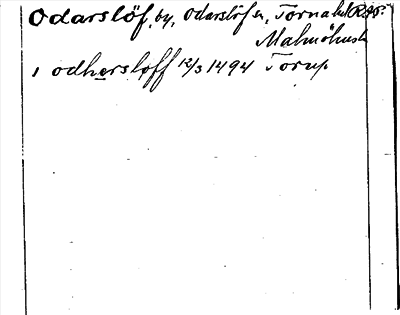 Odarslöf, by, Odarslöf sn, Torna hd
Malmöhus l
1 odhersloff 12/3 1494 Torup